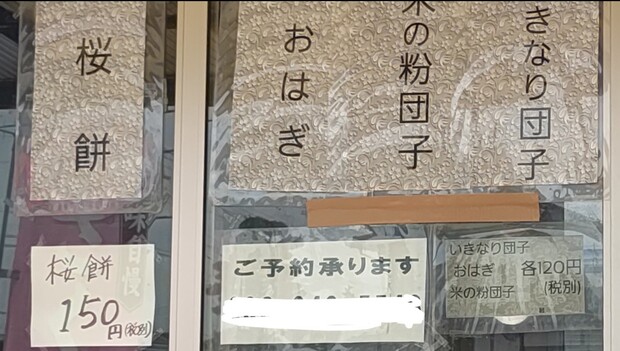 桜餅
おはぎ
米の粉団子
いきなり団子
桜餅
150円(税別)
ご予約承ります
いきなり団子
おはぎ 各120円
米の粉団子 (税別)